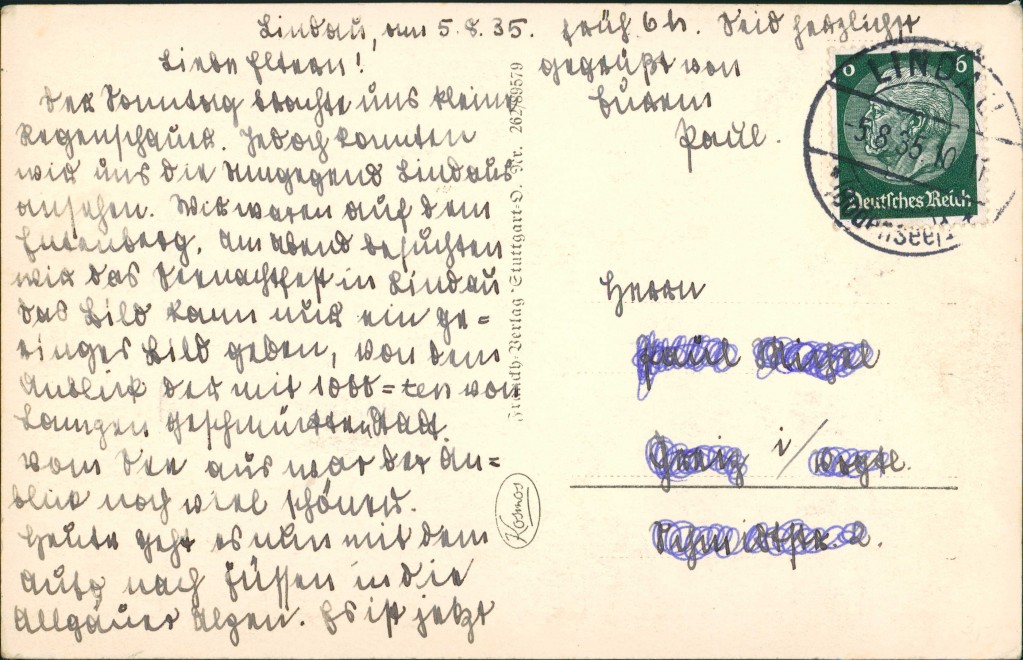 Lindau, am 5.8.35.
Liebe Eltern!
Der Sonntag brachte uns kleine
Regenschauer. Jedoch konnten
wir uns die Umgegend Lindaus
ansehen. Wir waren auf dem
Entenberg. Am Abend besuchten
wir das Seenachtfest in Lindau
das Bild kann nur ein ge=
ringes Bild geben, von dem
Anblick der mit 1000=ten von
Lampen geschmückten Stadt.
vom See aus war der An=
blick noch viel schöner.
Heute geht es nun mit dem
Auto nach Füssen in die
Allgäuer Alpen. Es ist jetzt
früh 6 h. Seid herzlichst
gegrüßt von
Eurem
Paul.
Franckh-Verlag Stuttgart-O. Nr. 262/89579
Kosmos
6 6
Deutsches Reich
LINDAU
5.8.35.10
(Bodensee)
Herrn
Paul
i/